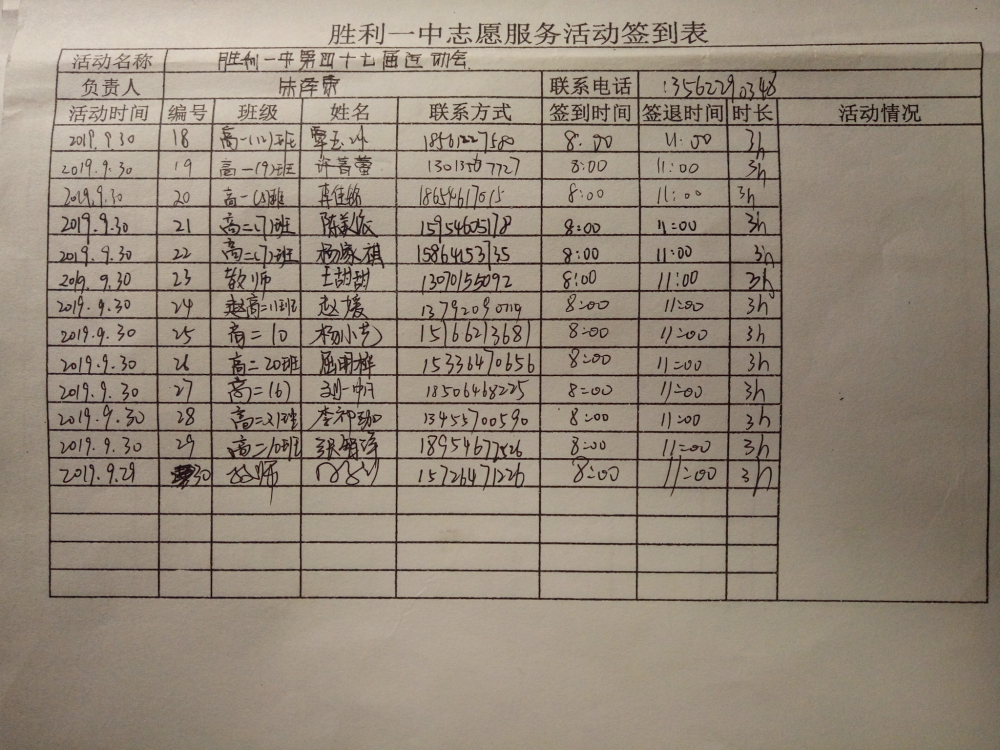 胜利一中志愿服务活动签到表
活动名称 胜利一中第四十七届运动会
负责人 联系电话 13562290348
活动时间 编号 班级 姓名 联系方式 签到时间 签退时间 时长 活动情况
2019.9.30 18 高一(12)班 18561227580 8:00 11:00 3h
2019.9.30 19 高一(9)班 许菁萤 8:00 11:00 3h
2019.9.30 20 18654617015 8:00 11:00 3h
2019.9.30 21 高二(7)班 陈美依 15954605178 8:00 11:00 3h
2019.9.30 22 高二(7)班 杨家祺 15864153735 8:00 11:00 3h
2019.9.30 23 教师 王甜甜 13070155092 8:00 11:00 3h
2019.9.30 24 赵高二11班 赵媛 8:00 11:00 3h
2019.9.30 25 高二10 15166213681 8:00 11:00 3h
2019.9.30 26 高二20班 15336470656 8:00 11:00 3h
2019.9.30 27 18506468225 8:00 11:00 3h
2019.9.30 28 高二21班 13455700590 8:00 11:00 3h
2019.9.30 29 高二10班 18954677526 8:00 11:00 3h
2019.9.29 30 教师 15726471226 8:00 11:00 3h